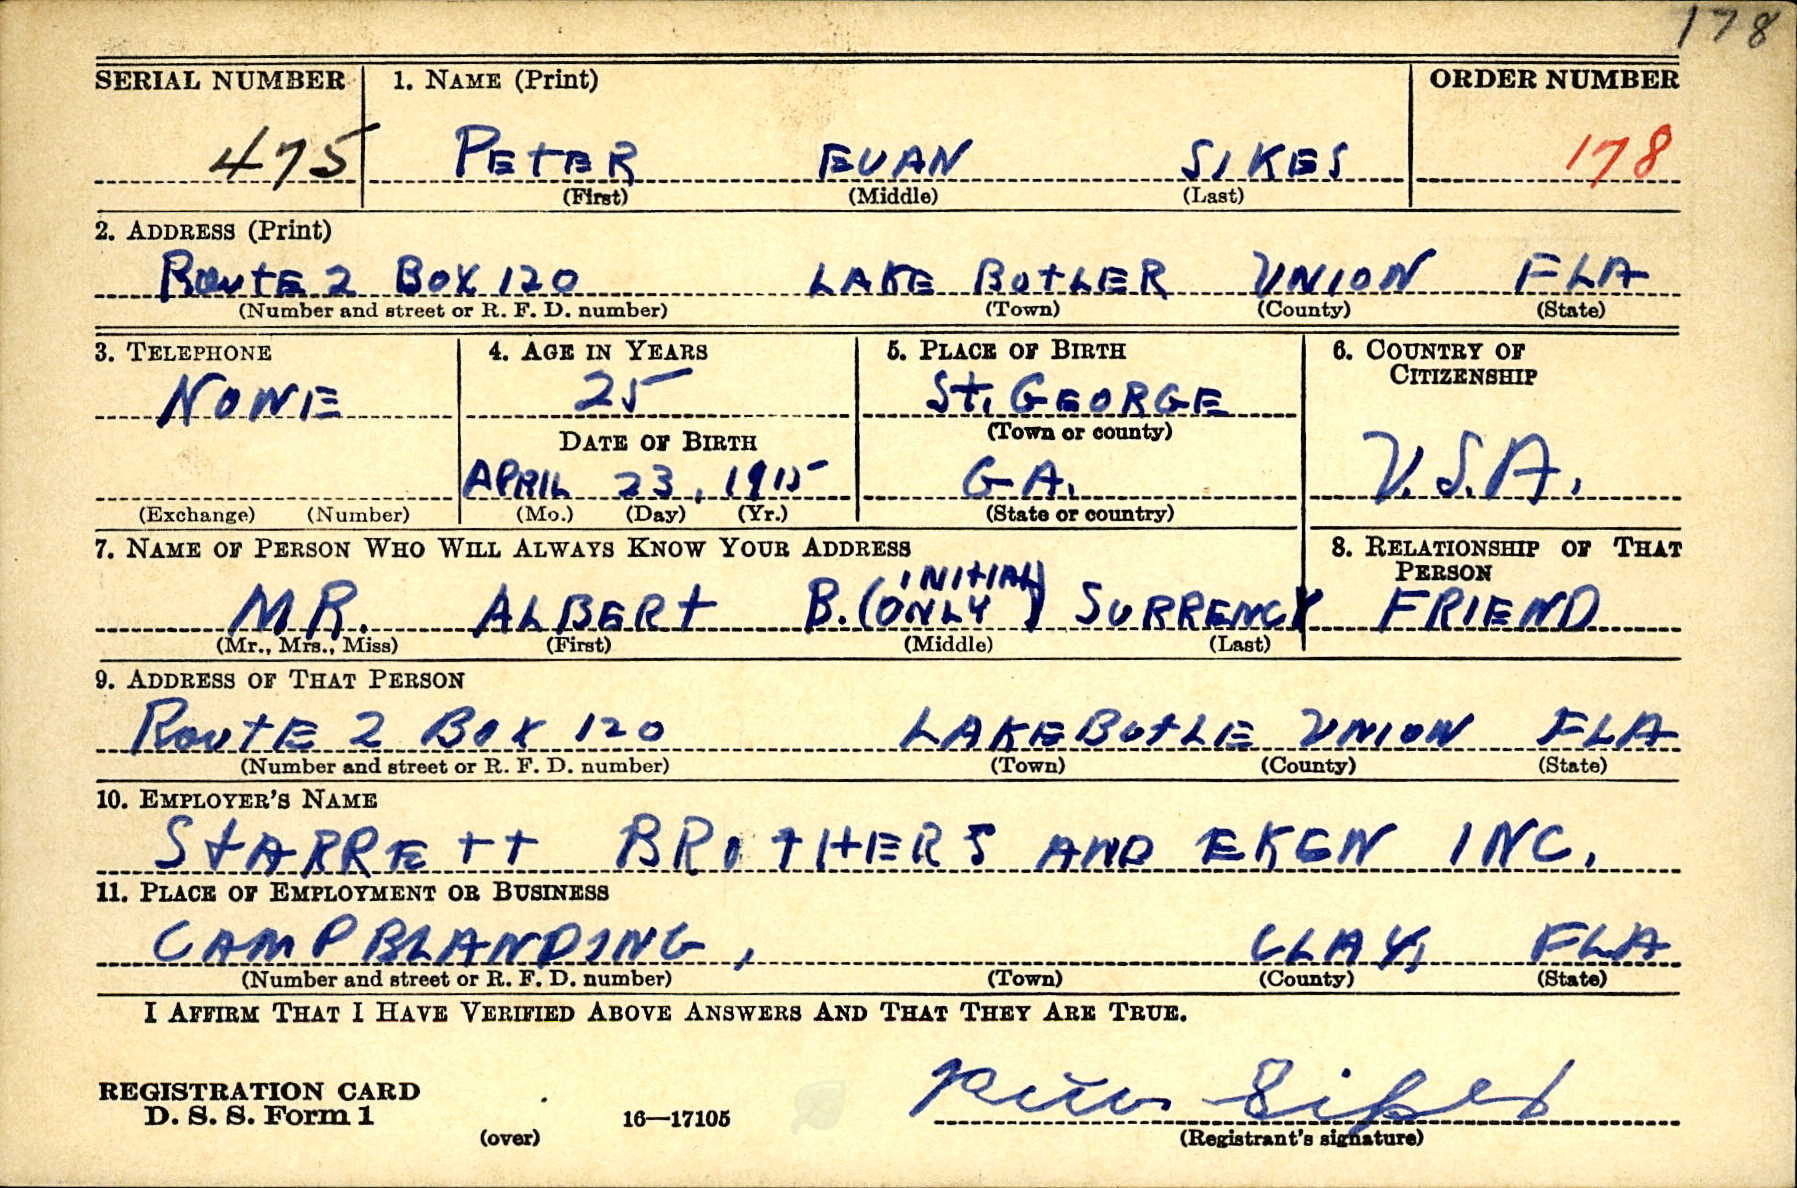 178
SERIAL NUMBER 1. NAME (Print) ORDER NUMBER
475 PETER EUAN SIKES 178
(First) (Middle) (Last)
2. ADDRESS (Print)
ROUTE 2 BOX 120 LAKE BUTLER UNION FLA
(Number and street or R. F. D. number) (Town) (County) (State)
3. TELEPHONE 4. AGE IN YEARS 5. PLACE OF BIRTH 6. COUNTRY OF CITIZENSHIP
NONE 25 St. GEORGE
DATE OF BIRTH (Town or county)
APRIL 23, 1915 GA. U.S.A.
(Exchange) (Number) (Mo.) (Day) (Yr.) (State or country)
7. NAME OF PERSON WHO WILL ALWAYS KNOW YOUR ADDRESS 8. RELATIONSHIP OF THAT PERSON
MR. ALBERT B. (INITIAL ONLY) SURRENCY FRIEND
(Mr., Mrs., Miss) (First) (Middle) (Last)
9. ADDRESS OF THAT PERSON
ROUTE 2 BOX 120 LAKE BUTLE UNION FLA
(Number and street or R. F. D. number) (Town) (County) (State)
10. EMPLOYER'S NAME
STARRETT BROTHERS AND EKEN INC.
11. PLACE OF EMPLOYMENT OR BUSINESS
CAMP BLANDING, CLAY, FLA
(Number and street or R. F. D. number) (Town) (County) (State)
I AFFIRM THAT I HAVE VERIFIED ABOVE ANSWERS AND THAT THEY ARE TRUE.
REGISTRATION CARD
D. S. S. Form 1 Peter Sikes
(over) 16—17105 (Registrant's signature)